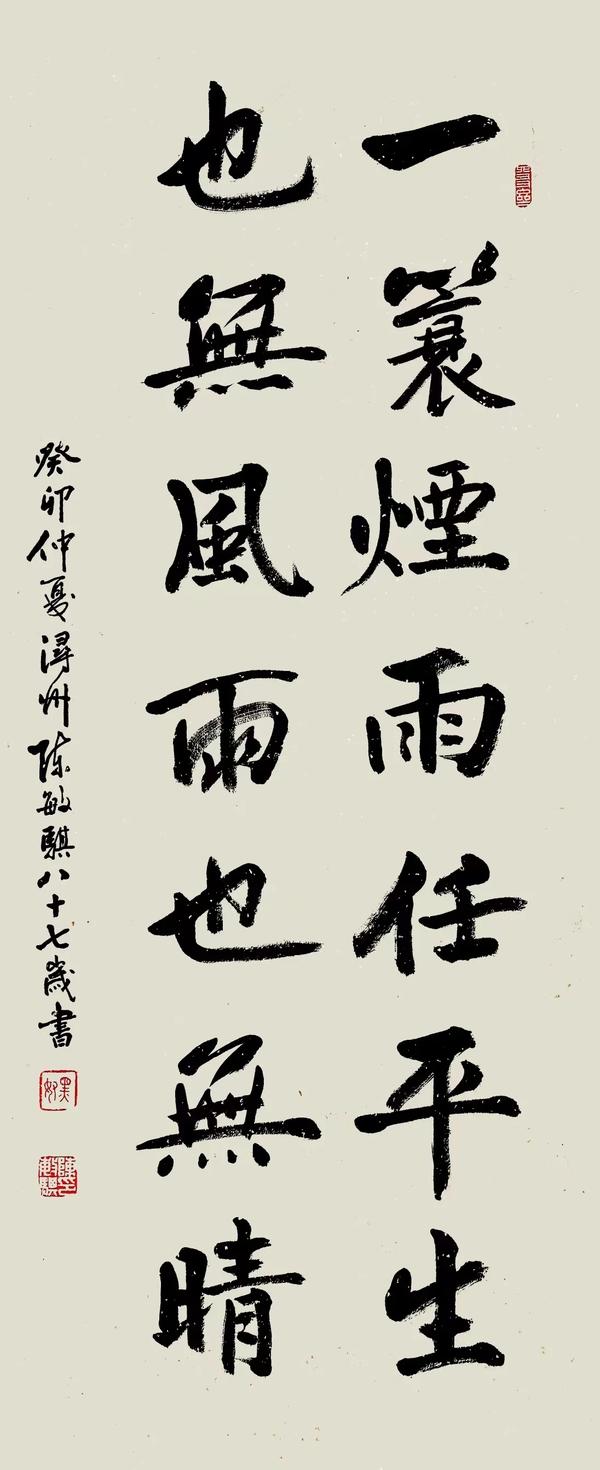 一簑煙雨任平生
也無風雨也無晴
癸卯仲夏潯州陈敏騏八十七歲書